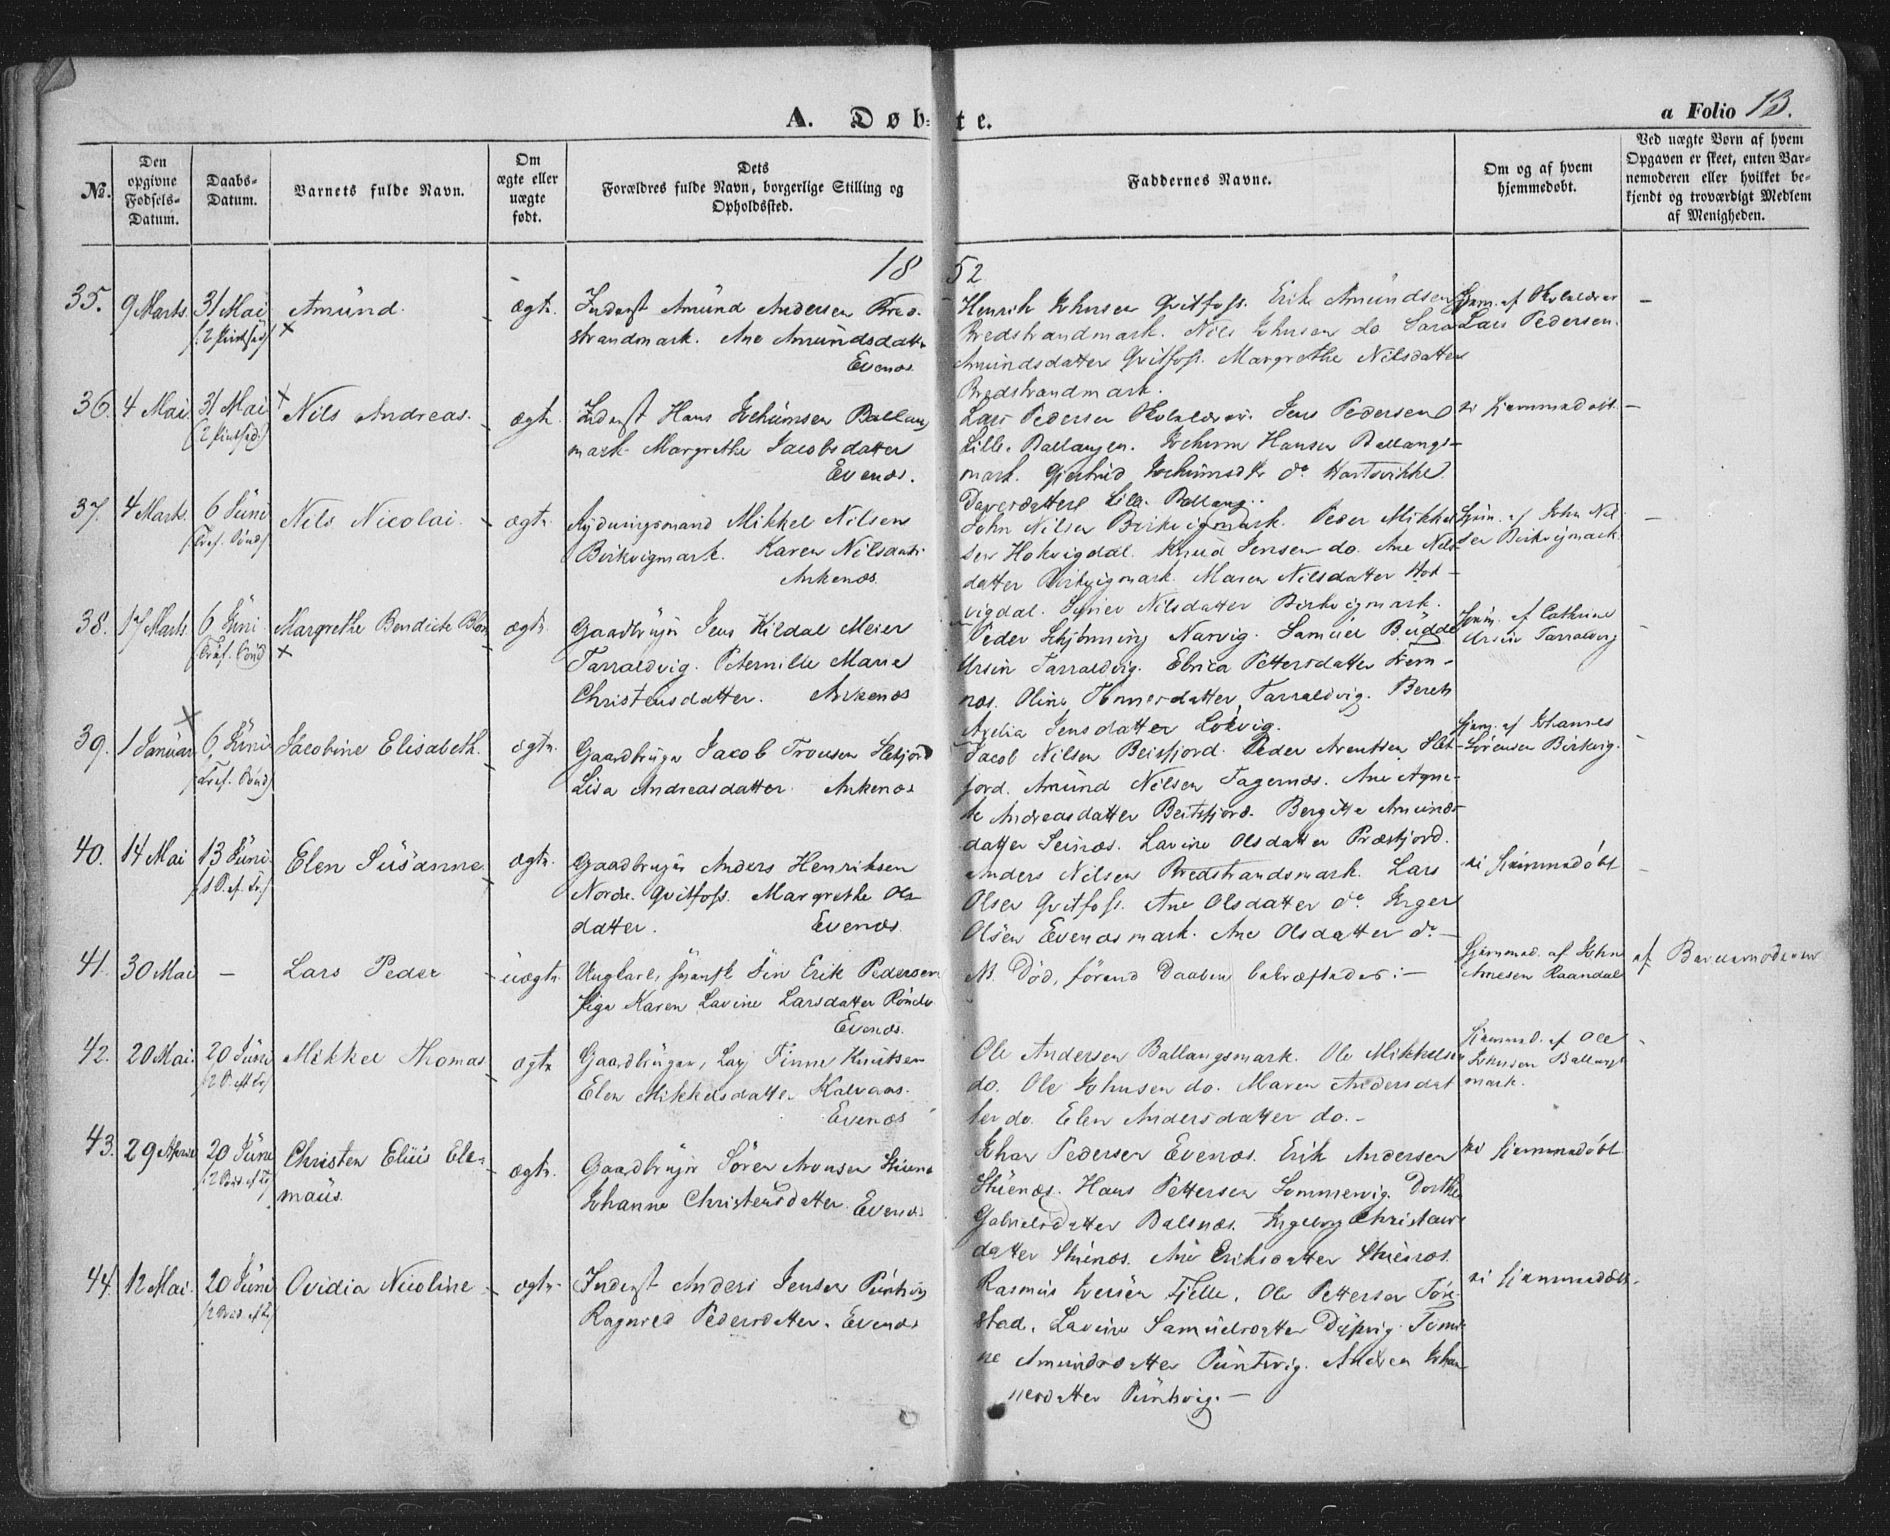 A. Døb-te.
a Folio 13.
No.
Den opgivne Fødsels-Datum.
Daabs-Datum.
Barnets fulde Navn.
Om ægte eller uægte født.
Dets Forældres fulde Navn, borgerlige Stilling og Opholdssted.
Faddernes Navne.
Om og af hvem hjemmedøbt.
Ved uægte Børn af hvem Opgaven er skeet, enten Barnemoderen eller hvilket bekjendt og troværdigt Medlem af Menigheden.
1852
35. 9 Marts. 31 Mai Amünd. ægte. Inderst Amünd Andersen Bred-
strandmark. Ane Amündsdatter
Evenæs
Henrik Johnsen Qvitfoss. Erik Amündsen
Bredstrandmark. Nils Johnsen do Sara
Amündsdatter Qvitfoss. Margrethe Nilsdatter
Bredstrandmark.
Hjem. af Skolelærer
Lars Pedersen.
36. 4 Mai 31 Mai Nils Andreas. ægte. Inderst Hans Jochumsen Ballang
mark. Margrethe Jacobsdatter
Evenæs.
Lars Pedersen Skolelærer. Jens Pedersen
Lille Ballangen. Jochum Hansen Ballangs-
mark. Gjertrud Jochumsdtr do
Lille Ballang.
ei hjemmedøbt.
37. 4 Marts. 6 Jüni Nils Nicolai. ægte. Rydningsmand Mikkel Nilsen
Birkvigmark. Karen Nilsdatter
Ankenæs.
John Nilsen Birkvigmark. Peder Mikkel
sen Hokvigdal. Knud Jensen do. Ane Nils-
datter Birkvigmark. Maren Nilsdatter Hok-
vigdal. Nilsdatter Birkvigmark.
Hjem. af John Nil-
sen Birkvigmark.
38. 17 Marts. 6 Jüni Margrethe Bendicte ægte. Gaardbruger Jens Kildal Meier
Tarraldvig. Peternille Marie
Christensdatter. Ankenæs
Peder Schjønning Narvig. Samuel Büdde
Ursin Tarraldvig. Pettersdatter Fem-
næs. Oline Tarraldvig. Bereth
Axelia Jensdatter
Hjem. af Cathrine
Ursin Tarraldvig
39. 1 Januar 6 Jüni Jacobine Elisabeth. ægte. Gaardbruger Jacob Tronsen
Lisa Andreasdatter. Ankenæs
Jacob Nilsen Beisfjord. Peder Arentsen
fjord. Amünd Nilsen Fagernæs. Ane Agne-
te Andreasdatter Beisfjord. Bergitte Amünds-
datter Leinæs. Lavine Olsdatter Præstjord.
Hjem. af Johannes
Sørensen Birkvig.
40. 14 Mai 13 Jüni Elen Süsanne. ægte. Gaardbruger Anders Henriksen
Nordre Qvitfoss. Margrethe Ols
datter. Evenæs
Anders Nilsen Bredstrandsmark. Lars
Olsen Qvitfoss. Ane Olsdatter do Inger
Olsen Evenæsmark. Ane Olsdatter do
ei hjemmedøbt
41. 30 Mai — Lars Peder uægte. Ungkarl, svensk Fin Erik Pedersen
Pige Karen Lavine Larsdatter
Evenæs.
N. Død, førend Daaben bekræftedes:—
Hjemmed. af John
Arnesen Raandal
af Barnemoderen
42. 20 Mai. 20 Jüni Mikkel Thomas. ægte Gaardbruger, Lap Finne Knutsen
Elen Mikkelsdatter Kalvaas.
Evenæs
Ole Andersen Ballangsmark. Ole Mikkelsen
do. Ole Johnsen do. Maren Andersdat
ter do. Elen Andersdatter do.
Hjemmed. af Ole
Johnsen Ballangs
mark.
43. 29 20 Jüni Christen Elüis Ele-
maüs.
ægte. Gaardbruger Sören Aronsen
Johanne Christensdatter. Evenæs
Johan Pedersen Evenæs. Erik Andersen
Stüenæs. Hans Pettersen Sommervig. Dorthe
Gabrielsdatter Balsnæs. Ingeborg Christens-
datter Stüenæs. Ane Eriksdatter Stüenæs.
ei hjemmedøbt
44. 12 Mai. 20 Jüni Ovidia Nicoline ægte. Inderst Anders Jensen
Ragnild Pedersdatter. Evenæs
Rasmus Iversen Fjelle. Ole Pettersen Tøre-
stad. Lavine Samüelsdatter Dypvig. Tomi-
ne Amündsdatter Püntvig. Andrea Johan-
nesdatter Püntvig.—
ei hjemmedøbt.